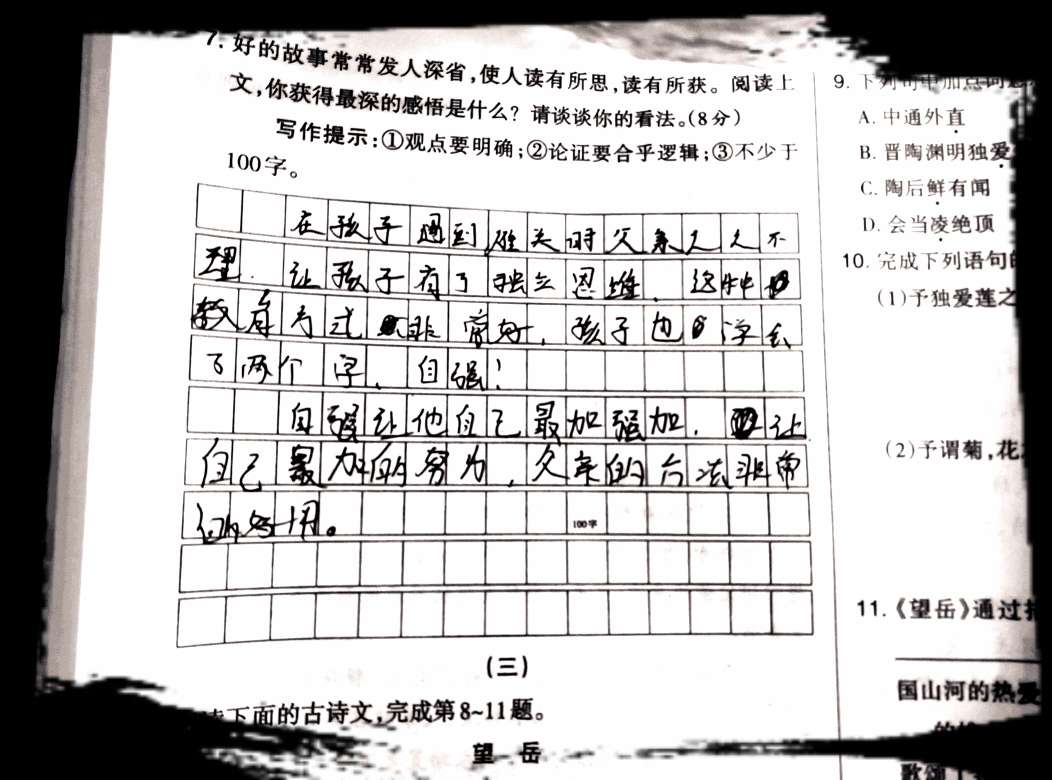 7. 好的故事常常发人深省,使人读有所思,读有所获。阅读上
文,你获得最深的感悟是什么?请谈谈你的看法。(8分)
写作提示:①观点要明确;②论证要合乎逻辑;③不少于
100字。
在孩子遇到难关时父亲久久不
理.让孩子有了独立思维.这种
教育方式非常好,孩子也学会
了两个字、自强!
自强让他自己最加强加.让
自己最加的努力,父亲的方法非常
的好用。
100字
(三)
下面的古诗文,完成第8~11题。
望岳
9.下列句中加点词
A.中通外直
B.晋陶渊明独爱
C.陶后鲜有闻
D.会当凌绝顶
10.完成下列语句的
(1)予独爱莲之
(2)予谓菊,花
11.《望岳》通过
国山河的热爱
歌颂